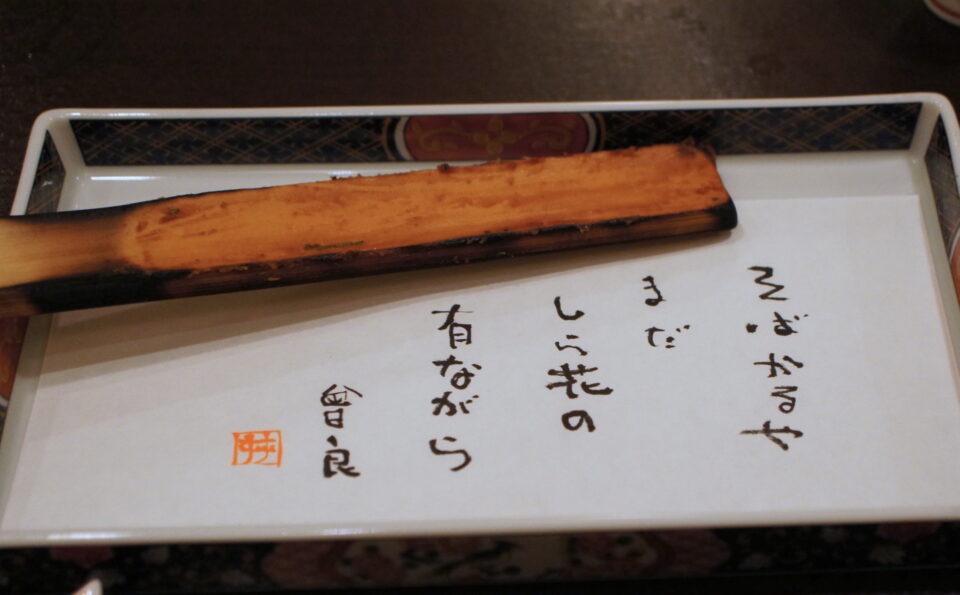 そばかるや
まだ
しら花の
有ながら
曽良